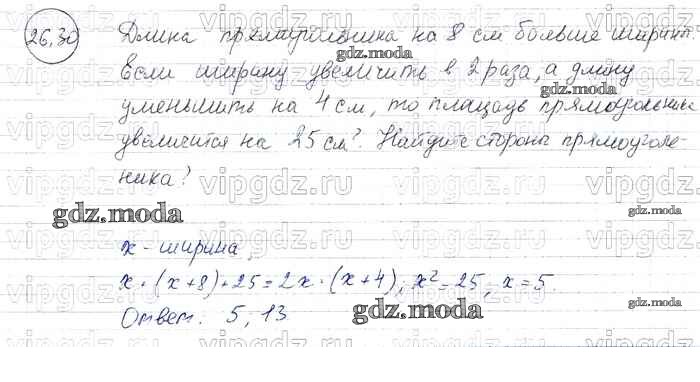 26.30
Длина прямоугольника на 8 см больше ширины.
Если ширину увеличить в 2 раза, а длину
уменьшить на 4 см, то площадь прямоугольника
увеличится на 25 см². Найдите стороны прямоуголь-
ника?
x - ширина,
x · (x+8)+25=2x · (x+4), x²=25, x=5.
Ответ: 5; 13
gdz.moda
vipgdz.ru